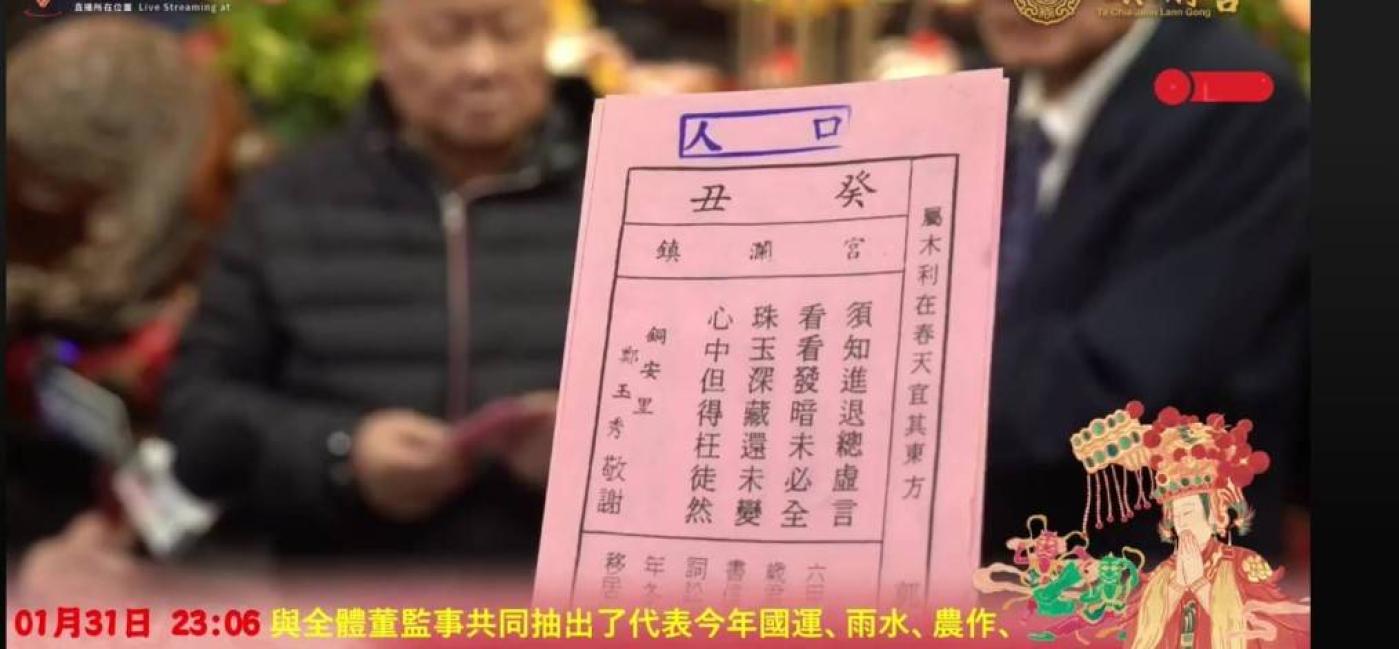 直播所在位置 Live Streaming at
Ta Chia Jenn Lann Gong
人口
癸丑
鎮瀾宮
屬木利在春天宜其東方
須知進退總虛言
看看發暗未必全
珠玉深藏還未變
心中但得枉徒然
銅安里
鄭玉秀敬謝
年冬
移居
01月31日 23:06 與全體董監事共同抽出了代表今年國運、雨水、農作、